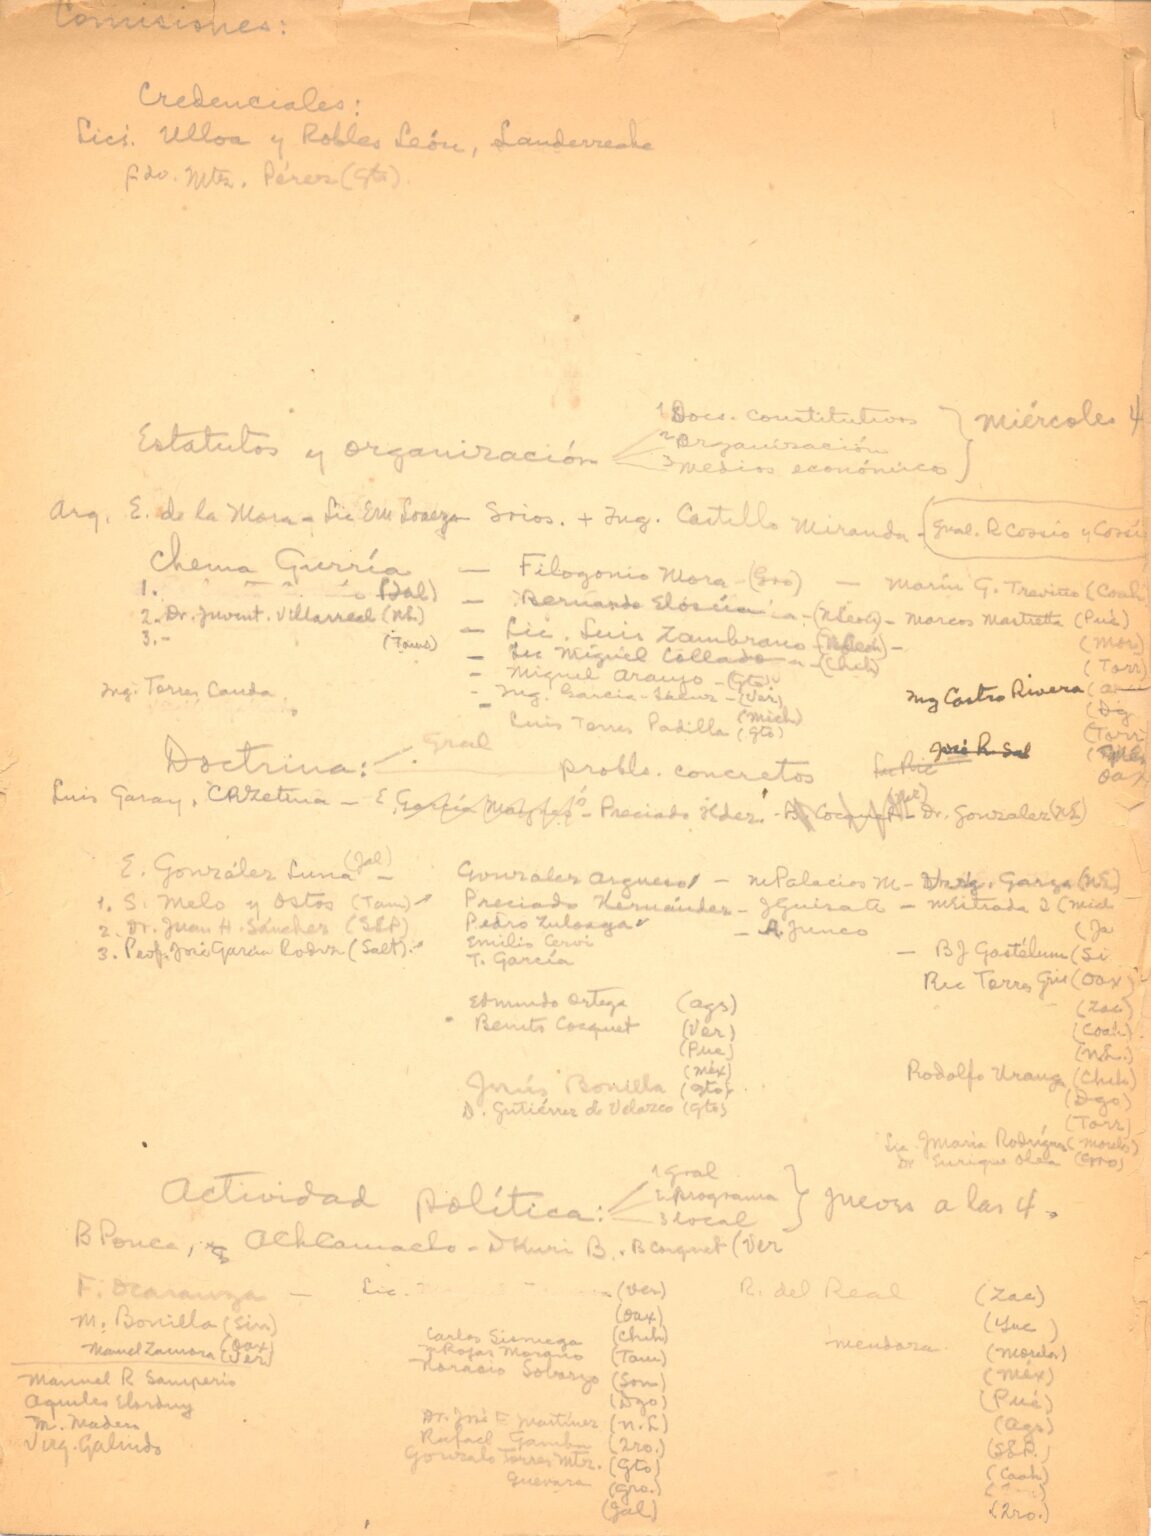 Comisiones:
Credenciales:
Lics. Ulloa y Robles León, Landerreche
Fdo. Mtz. Pérez (Gto).
Estatutos y organización
1 Docs. constitutivos
2 Organización
3 medios económicos
Miércoles 4
Arq. E. de la Mora - Lic Srios. + Ing. Castillo Miranda - Gral. R Cossío y Cossío
Chema Gurría — Filogonio Mora - (Gro) — Marín G. Treviño (Coah
1. (Jal) — Bernardo Elósúa - (NLeón) - Marcos Mastretta (Pué)
2. Dr. Juvent. Villarreal (NL) — Lic. Luis Zambrano (NLeón) - (Mor)
3. - (Tams) — Lic Miguel Collado - (Chih) (Torr)
- Miguel Araujo - (Gto)
Ing. Torres Landa - Ing. Garcia (Ver) Ing Castro Rivera
Luis Torres Padilla (Mich) (Gto) (Dg (Torr
Doctrina: Gral
probls. concretos José R. Sal Oax
Luis Garay, CRZetina - E. García Máynez - Preciado Hdez. - B. Cocquet - (Ver) Dr. Gonzalez (NL)
E. González Luna (Jal) - González Argueso - M Palacios M - Garza (NL)
1. S. Melo y Ostos (Tam) Preciado Hernández - JGuisa A - M Estrada I (Mich
2. Dr. Juan H. Sánchez (SLP) Pedro Zuloaga - A. Junco (Ja
3. Prof. José García Rodrz (Salt). Emilio Cervi
T. García — BJ Gastélum (Si
Ric Torres (Oax)
Edmundo Ortega (Ags) (Zac)
Benito Cocquet (Ver) (Coah)
(Pue) (N.L.)
(Méx) Rodolfo Uranga (Chih)
Jesús Bonilla (Gto) (Dgo)
D. Gutiérrez de Velazco (Gto) (Torr)
Lic. JMaría Rodríguez (Morelos)
Dr Enrique (Gro)
Actividad política:
1 Gral
2 programa
3 local
Jueves a las 4.
B Ponce, AChicamacho - DKuri B. B Cocquet (Ver
F. Ocaranza — Lic. (Ver) R. del Real (Zac)
M. Bonilla (Sin) (Oax) (Yuc)
Manuel Zamora (Oax) (Ver) Carlos Sisniega (Chih) Mendoza (Morelos)
Rojas Moreno (Tam) (Méx)
Manuel R Samperio Horacio Sobarzo (Son) (Pué)
Aquiles Elorduy (Dgo) (Ags)
M. Madero Dr. José F. Martínez (N.L) (SLP.)
Virg. Galindo Rafael Gamba (Qro.) (Coah)
Gonzalo Torres Mtz. (Gto)
Guevara (Gro.) (Qro.)
(Jal)